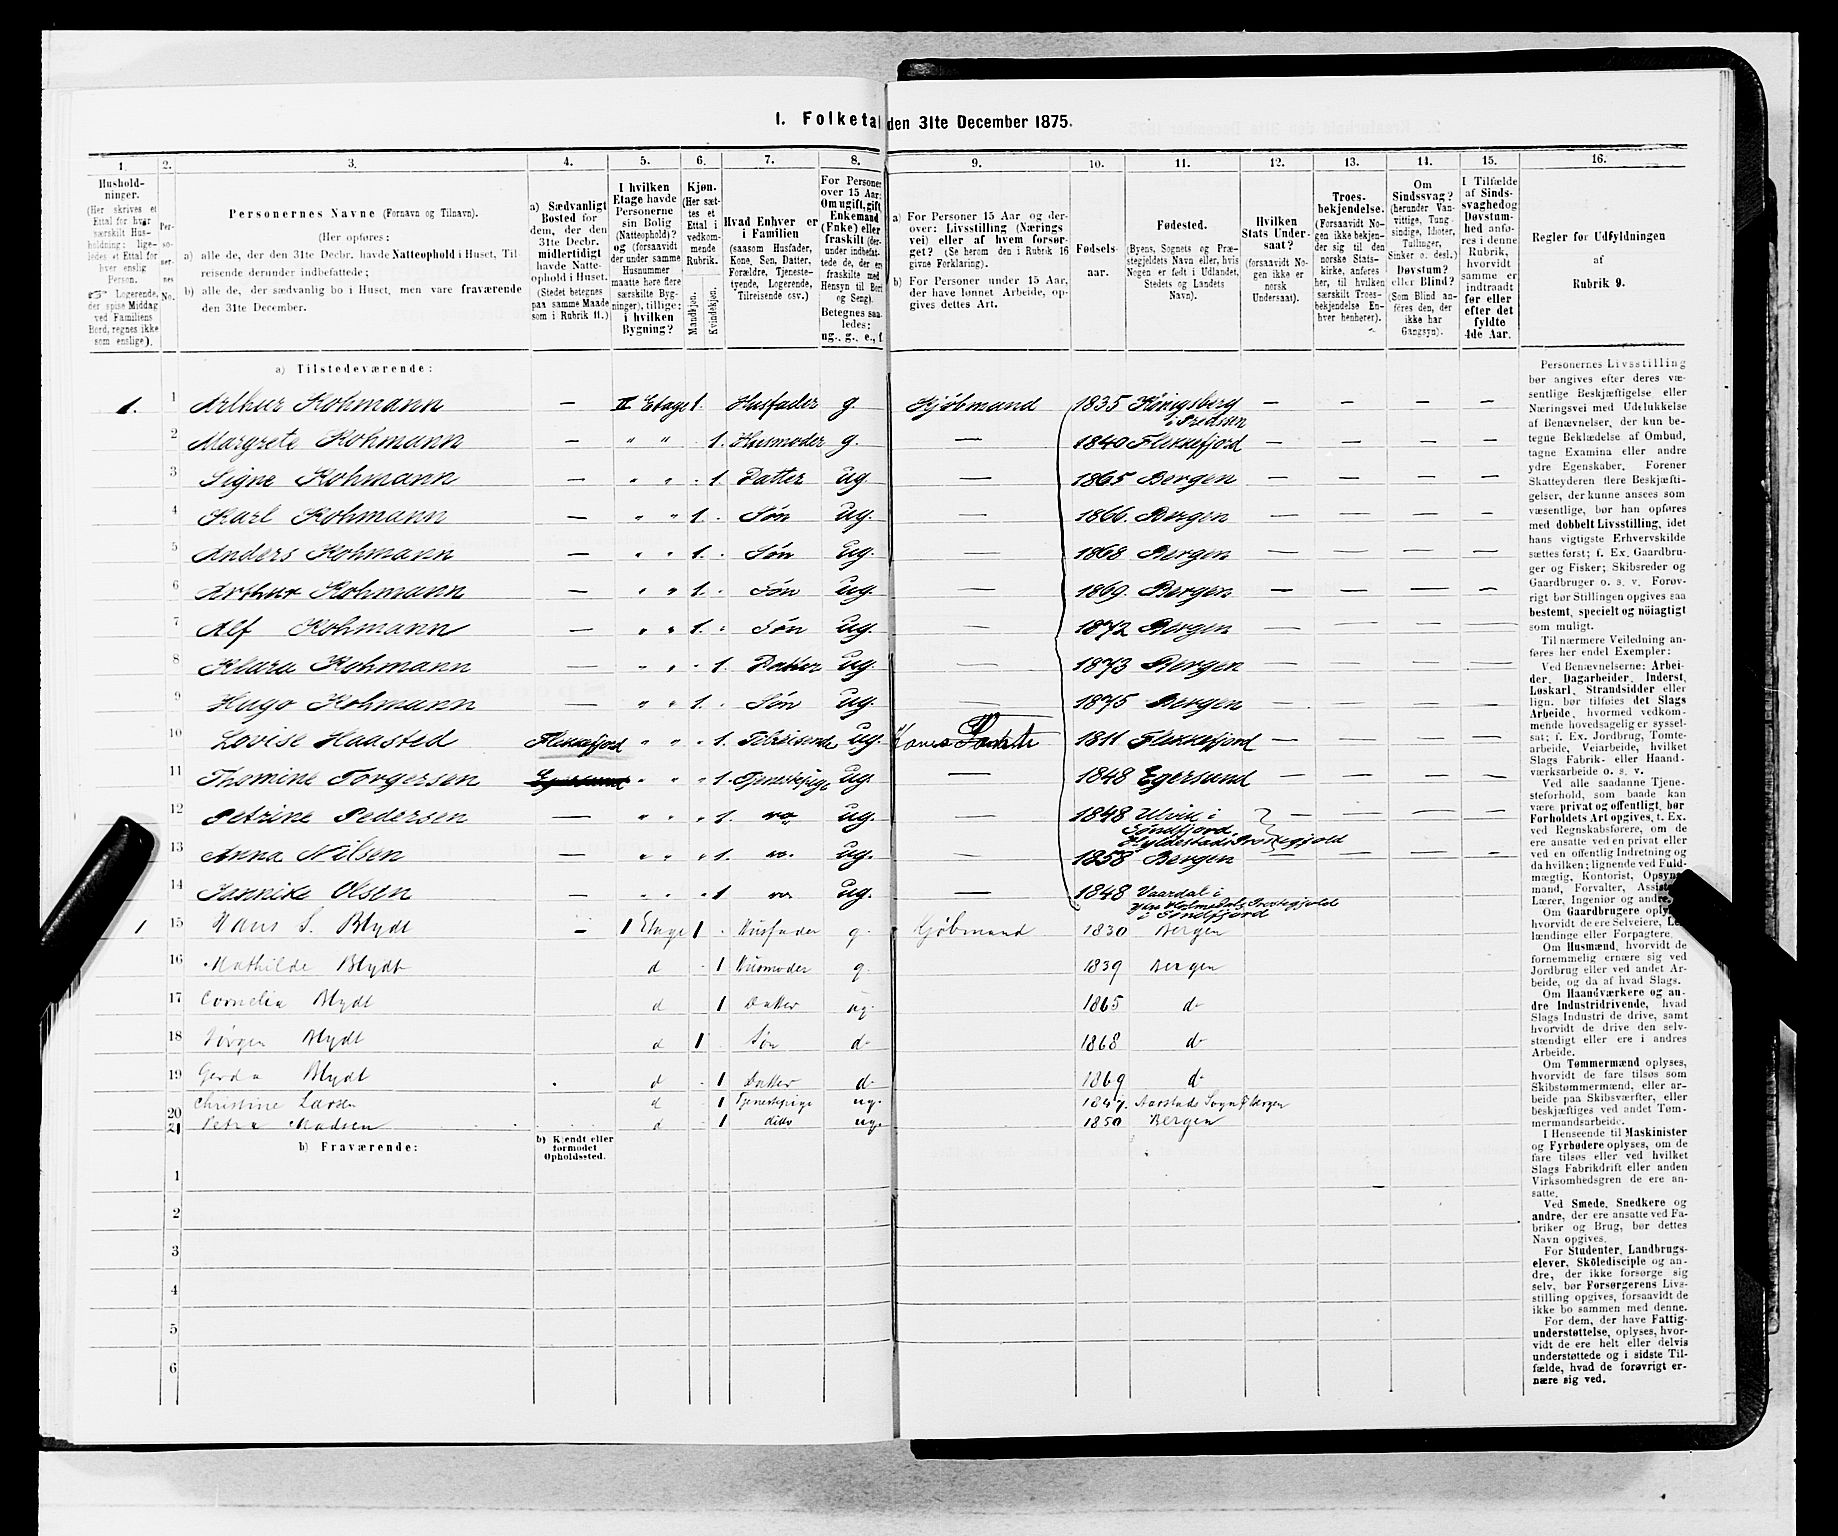 1. Folketal den 31te December 1875.
1. 2. 3. 4. 5. 6. 7. 8. 9. 10. 11. 12. 13. 14. 15. 16.
Hushold-
ninger.
(Her skrives et
Ettal for hver
særskilt Hus-
holdning; lige-
ledes et Ettal for
hver enslig
Person.
☞ Logerende,
der spise Middag
ved Familiens
Bord, regnes ikke
som enslige).
Per-
so-
ner-
nes
No.
Personernes Navne (Fornavn og Tilnavn).
(Her opføres:
a) alle de, der den 31te Decbr. havde Natteophold i Huset, Til
reisende derunder indbefattede;
b) alle de, der sædvanlig bo i Huset, men vare fraværende
den 31te December.
a) Sædvanligt
Bosted for
dem, der den
31te Decbr.
midlertidigt
havde Natte-
ophold i Huset.
(Stedet betegnes
paa samme Maade
som i Rubrik 11.)
I hvilken
Etage havde
Personerne
sin Bolig
(Natteophold)?
og (forsaavidt
der under samme
Husnummer
maatte høre flere
særskilte Byg-
ninger), tillige:
i hvilken
Bygning?
Kjøn.
(Her sæt-
tes et
Ettal i
vedkom-
mende
Rubrik.
Mandkjøn.
Kvindekjøn.
Hvad Enhver er
i Familien
(saasom Husfader,
Kone, Søn, Datter,
Forældre, Tjeneste-
tyende, Logerende,
Tilreisende osv.)
For Personer
over 15 Aar:
Om ugift, gift,
Enkemand
(Enke) eller
fraskilt (der-
under indbefat-
tede de, der ere
fraskilte med
Hensyn til Bord
og Seng).
Betegnes saa-
ledes:
ug., g., e., f.
a) For Personer 15 Aar og der-
over: Livsstilling (Nærings
vei) eller af hvem forsør-
get? (Se herom den i Rubrik 16
givne Forklaring).
b) For Personer under 15 Aar,
der have lønnet Arbeide, op-
gives dettes Art.
Fødsels-
aar.
Fødested.
(Byens, Sognets og Præ-
stegjeldets Navn eller, hvis
Nogen er født i Udlandet,
Stedets og Landets
Navn).
Hvilken
Stats Under-
saat?
(forsaavidt No-
gen ikke er
norsk
Undersaat).
Troes-
bekjendelse.
(Forsaavidt No-
gen ikke bekjen-
der sig til den
norske Stats-
kirke, anføres
her, til hvilken
særskilt Troes-
bekjendelse En-
hver henhører).
Om
Sindssvag?
(herunder Van-
vittige, Tung-
sindige, Idioter,
Tullinger,
Sinker o. desl.)
Døvstum?
eller Blind?
(Som Blind an-
føres den, der
ikke har
Gangsyn).
I Tilfælde
af Sinds-
svaghed og
Døvstum-
hed anfø-
res i denne
Rubrik,
hvorvidt
samme er
indtraadt
før eller
efter det
fyldte
4de Aar.
Regler for Udfyldningen
af
Rubrik 9.
a) Tilstedeværende:
1. 1 Arthur Kohmann — II Etage 1. Husfader g. Kjøbmand 1835 Königsberg — — — —
i Preussen
2 Margrete Kohmann — " " 1. Husmoder g. — 1840 Flekkefjord — — — —
3 Signe Kohmann — " " 1. Datter ug. — 1865 Bergen — — — —
4 Karl Kohmann — " " 1. Søn ug. — 1866. Bergen — — — —
5 Anders Kohmann — " " 1. Søn ug. — 1868 Bergen — — — —
6 Arthur Kohmann — " " 1. Søn ug. — 1869. Bergen — — — —
7 Alf Kohmann — " " 1. Søn ug. — 1872 Bergen — — — —
8 Klara Kohmann — " " 1. Datter ug. — 1873 Bergen — — — —
9 Hugo Kohmann — " " 1. Søn ug. — 1875 Bergen — — — —
10 Lovise Haasted Flekkefjord " " 1. Tilreisende ug. Kones 1811 Flekkefjord — — — —
11 Thomine Torgersen Egersund " " 1. Tjenestepige ug. — 1848 Egersund — — — —
12 Petrine Pedersen — " " 1. ug. — 1848 Ulvik i — — — —
Søndfjord.
13 Anna Nilsen — " " 1. ug. — 1858 Bergen — — — —
14 Olsen — " " 1 ug. — 1848 Vaardal i
i Søndfjord
1 15 Hans S. Blydt — 1 Etage 1 Husfader g. Kjøbmand 1830 Bergen
16 Mathilde Blydt d 1 Husmoder g. 1839 Bergen
17 Cornelia Blydt d 1 Datter ug. 1865 d-
18 Jørgen Blydt d 1 Søn d- 1868 d-
19 Gerda Blydt d 1 Datter d- 1869 d-
20 Christine Larsen d 1 Tjenestepige ug. 1847. Aarstads Sogn Bergen
21 Petra Madsen d 1 ditto ug. 1850 Bergen
b) Fraværende:
b) Kjendt eller
formodet
Opholdssted.
1
2
3
4
5
6
Personernes Livsstilling
bør angives efter deres væ-
sentlige Beskjæftigelse eller
Næringsvei med Udelukkelse
af Benævnelser, der kun be-
tegne Beklædelse af Ombud,
tagne Examina eller andre
ydre Egenskaber. Forener
Skatteyderen flere Beskjæfti-
gelser, der kunne ansees som
væsentlige, bør han opføres
med dobbelt Livsstilling, idet
hans vigtigste Erhvervskilde
sættes først; f. Ex. Gaardbru-
ger og Fisker; Skibsreder og
Gaardbruger o. s. v. Forøv-
rigt bør Stillingen opgives saa
bestemt, specielt og nöiagtigt
som muligt.
Til nærmere Veiledning an-
føres her endel Exempler:
Ved Benævnelserne: Arbei-
der, Dagarbeider, Inderst,
Løskarl, Strandsidder eller
lign. bør tilføies det Slags
Arbeide, hvormed vedkom-
mende hovedsagelig er syssel-
sat; f. Ex. Jordbrug, Tomte-
arbeide, Veiarbeide, hvilket
Slags Fabrik- eller Haand-
værksarbeide o. s. v.
Ved alle saadanne Tjene-
steforhold, som baade kan
være privat og offentligt, bør
Forholdets Art opgives, t. Ex.
ved Regnskabsførere, om de
ere ansatte ved en privat eller
ved en offentlig Indretning og
da hvilken; lignende ved Fuld-
mægtig, Kontorist, Opsyns-
mand, Forvalter, Assistent,
Lærer, Ingeniør og andre.
Om Gaardbrugere oplyses,
hvorvidt de ere Selveiere, Lei-
lændinge eller Forpagtere.
Om Husmænd, hvorvidt de
fornemmelig ernære sig ved
Jordbrug eller ved andet Ar-
beide, og da af hvad Slags.
Om Haandværkere og an-
dre Industridrivende, hvad
Slags Industri de drive, samt
hvorvidt de drive den selv-
stændigt eller ere i andres
Arbeide.
Om Tømmermænd oplyses,
hvorvidt de fare tilsøs som
Skibstømmermænd, eller ar-
beide paa Skibsværfter, eller
beskjæftiges ved andet Tøm-
mermandsarbeide.
I Henseende til Maskinister
og Fyrbødere oplyses, om de
fare tilsøs eller ved hvilket
Slags Fabrikdrift eller anden
Virksomhedsgren de ere an-
satte.
Ved Smede, Snedkere og
andre, der ere ansatte ved Fa-
briker og Brug, bør dettes
Navn opgives.
For Studenter, Landbrugs-
elever, Skoledisciple og an-
dre, der ikke forsørge sig
selv, bør Forsørgerens Livs-
stilling opgives, forsaavidt de
ikke bo sammen med denne.
For dem, der have Fattig-
understøttelse, oplyses, hvor-
vidt de ere helt eller delvis
understøttede og i sidste Til-
fælde, hvad de forøvrigt er-
nære sig ved.